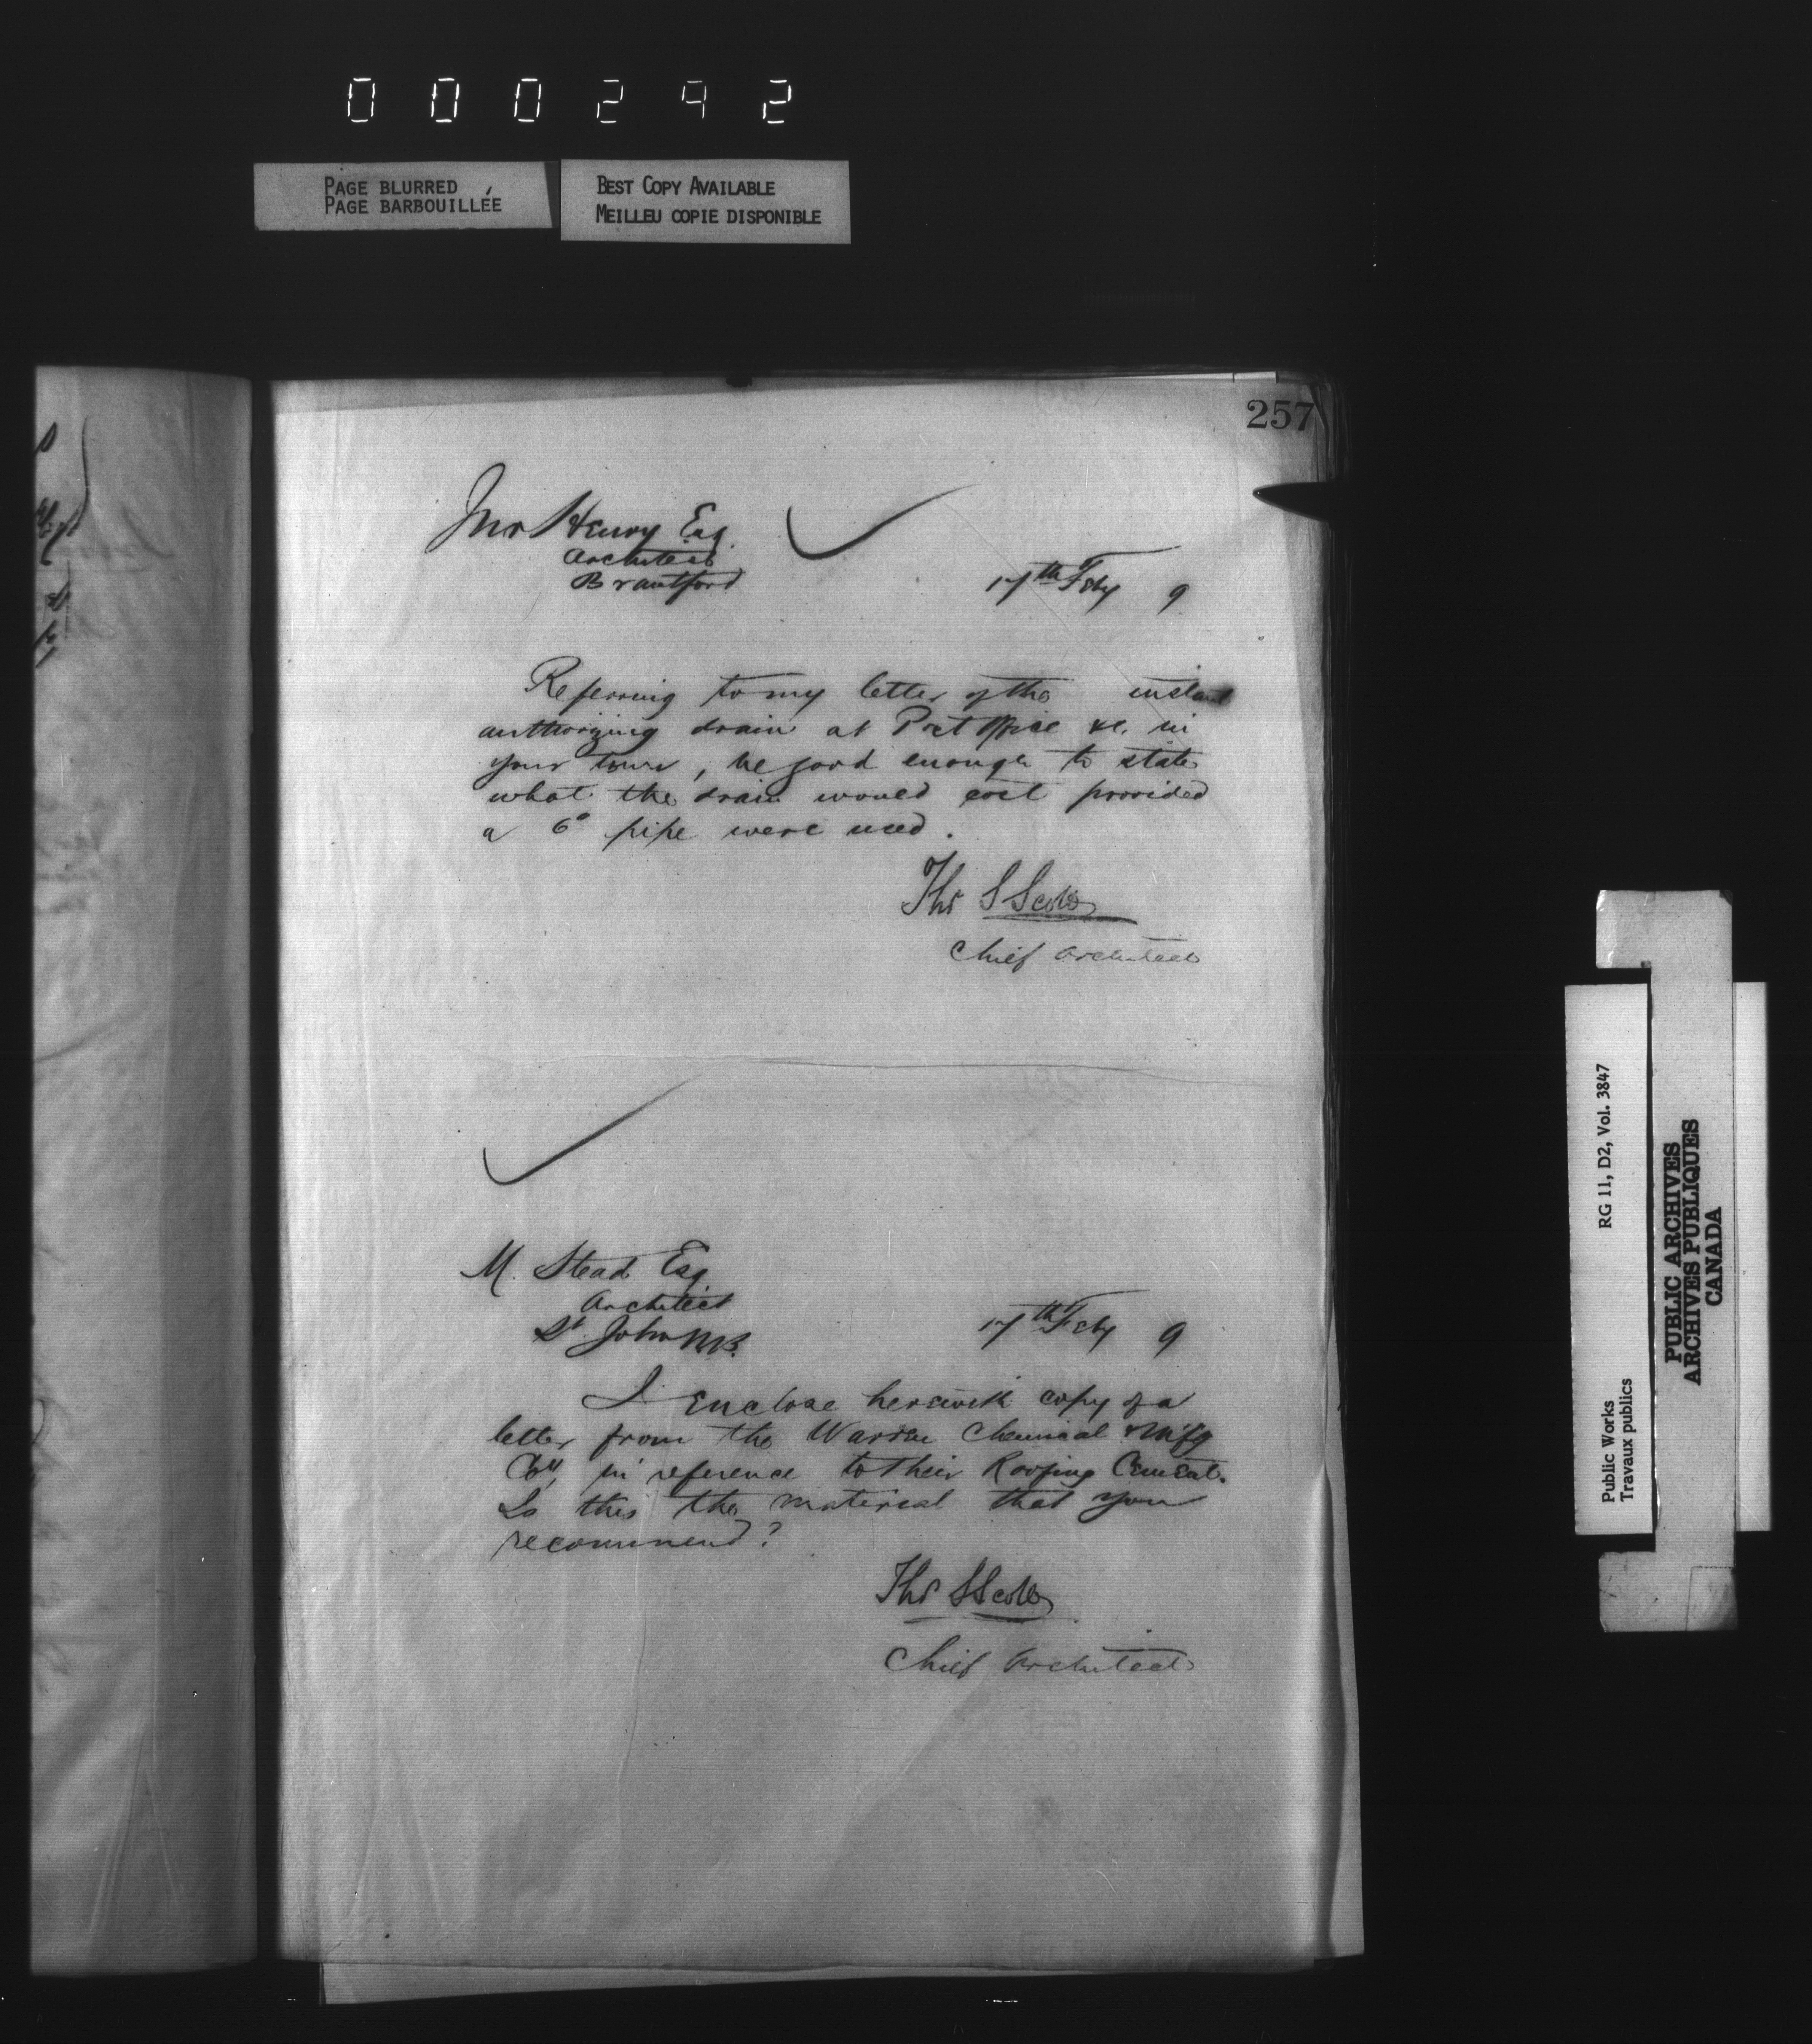 000292
PAGE BLURRED
PAGE BARBOUILLÉE
BEST COPY AVAILABLE
MEILLEU COPIE DISPONIBLE
257
Jno Henry Esq.
Architect
Brantford
17th Feby 9
Referring to my letter of the instant
authorizing drain at Post Office &c. in
your town, be good enough to state
what the drain would cost provided
a 6" pipe were used.
Thos S Scott
Chief Architect
M. Stead Esq.
Architect
St John N.B.
17th Feby 9
I enclose herewith copy of a
letter from the Warren Chemical & M'f'g
Coy, in reference to their Roofing Cement.
Is this the material that you
recommend?
Thos S Scott
Chief Architect
Public Works
Travaux publics
RG 11, D2, Vol. 3847
PUBLIC ARCHIVES
ARCHIVES PUBLIQUES
CANADA